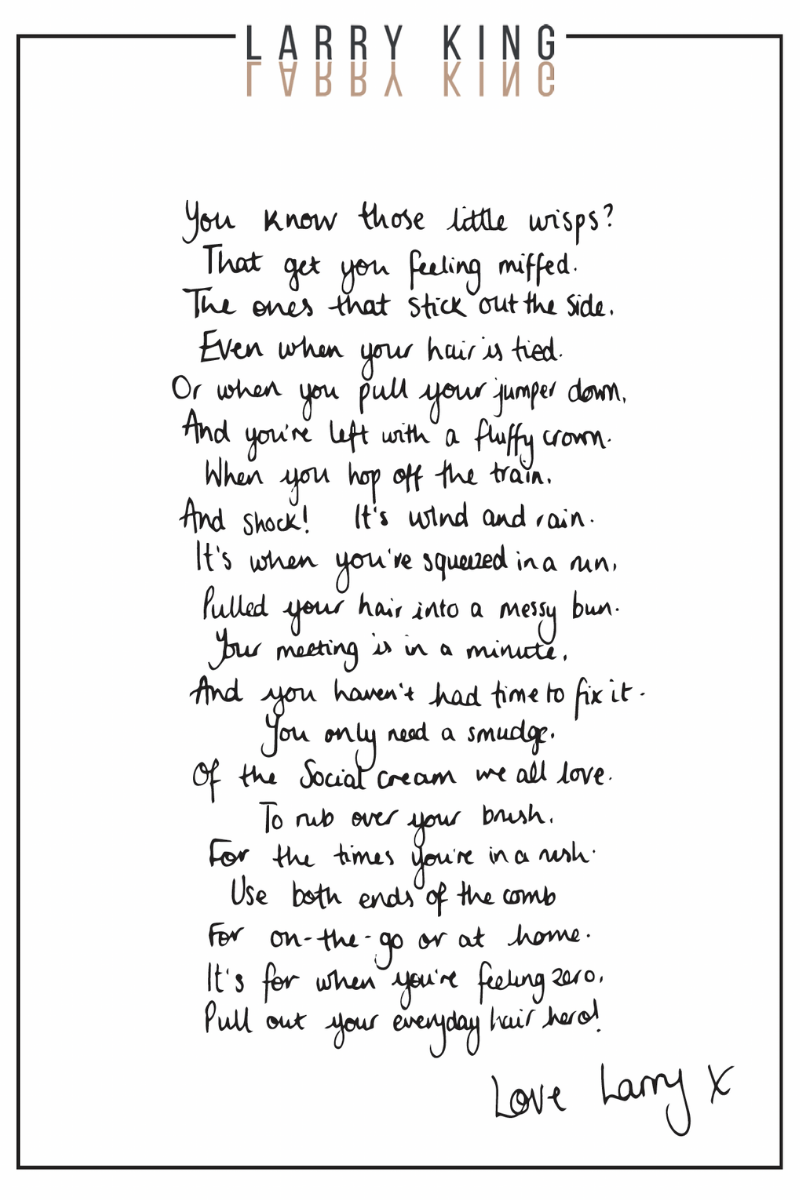 LARRY KING
LARRY KING
You know those little wisps?
That get you feeling miffed.
The ones that stick out the side.
Even when your hair is tied.
Or when you pull your jumper down,
And you're left with a fluffy crown.
When you hop off the train.
And shock! It's wind and rain.
It's when you've squeezed in a run,
Pulled your hair into a messy bun.
Your meeting is in a minute,
And you haven't had time to fix it.
You only need a smudge.
Of the Social cream we all love.
To rub over your brush.
For the times you're in a rush.
Use both ends of the comb
For on-the-go or at home.
It's for when you're feeling zero,
Pull out your everyday hair hero!
Love Larry X